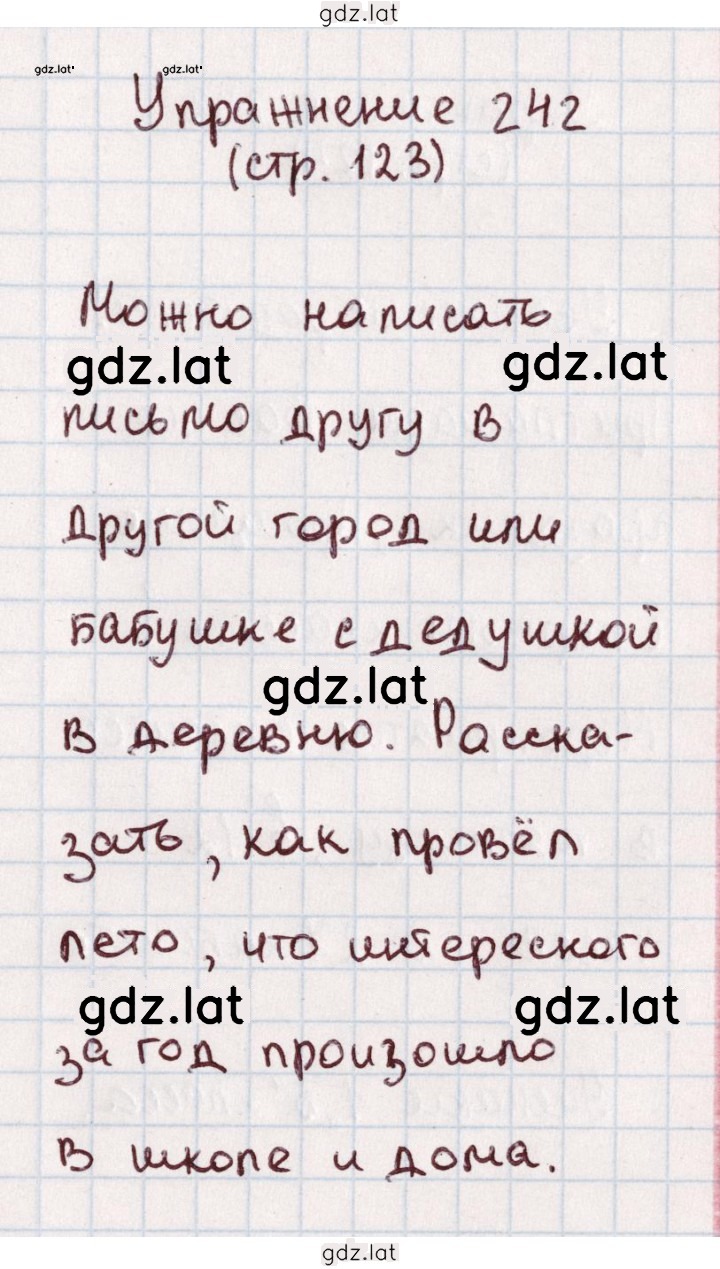 gdz.lat
gdz.lat gdz.lat
Упражнение 242
(стр. 123)
Можно написать
gdz.lat gdz.lat
письмо другу в
другой город или
бабушке с дедушкой
gdz.lat
в деревню. Расска-
зать, как провёл
лето, что интересного
gdz.lat gdz.lat
за год произошло
в школе и дома.
gdz.lat